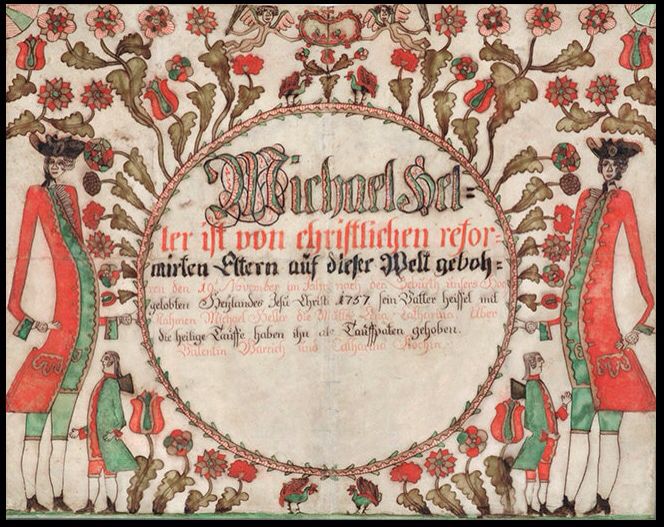 Michael Hel=
ler ist von christlichen refor=
mirten Eltern auf dieser Welt geboh=
ren den 19 November im Jahr nach der Geburth unsers Hoc
gelobten Heylandes Jesu Christi 1757 sein Vatter heisset mit
Nahmen Michael Heller die Mutter Catharina Über
die heilige Tauffe haben ihn als Tauffpaten gehoben.
Valentin und Catharina